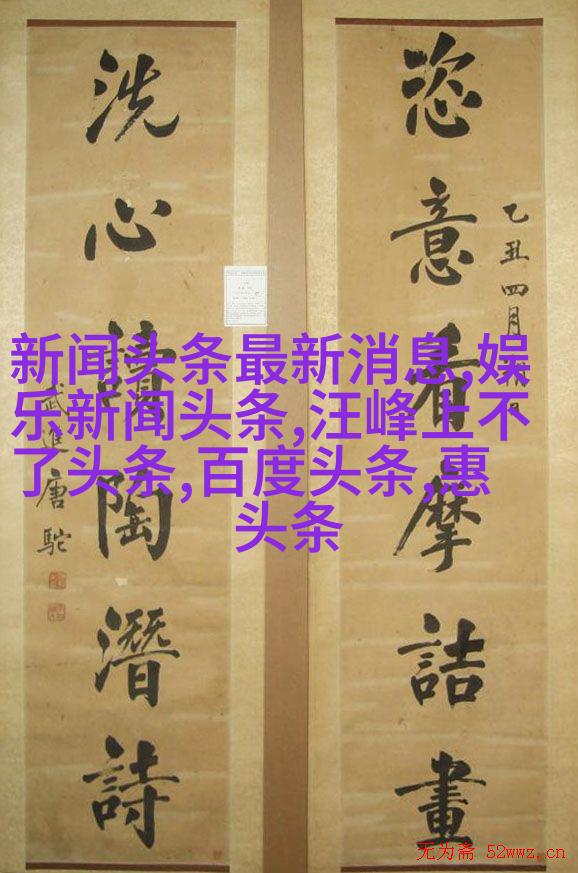 恣意看摩詰畫
乙丑四月
洗心讀陶潛詩
武進唐駝
新闻头条最新消息,娱
乐新闻头条,汪峰上不
了头条,百度头条,惠
头条
无为斋 52wwz.cn